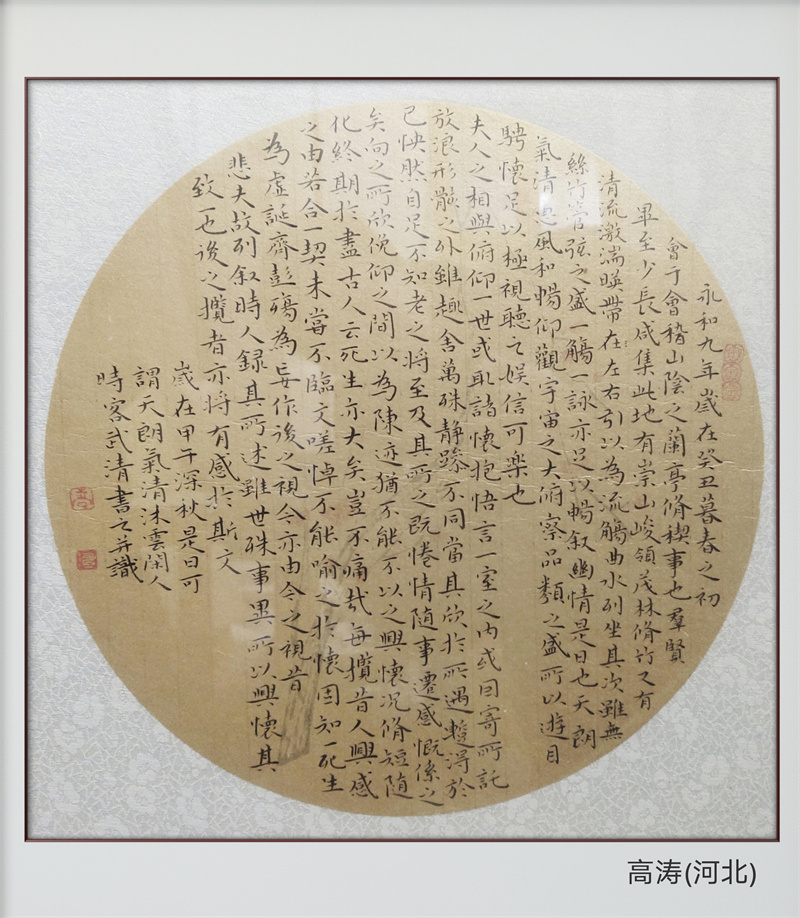 永和九年歲在癸丑暮春之初
會于會稽山陰之蘭亭脩稧事也羣賢
畢至少長咸集此地有崇山峻領茂林脩竹又有
清流激湍暎帶在左右引以為流觴曲水列坐其次雖無
絲竹管弦之盛一觴一詠亦足以暢叙幽情是日也天朗
氣清惠風和暢仰觀宇宙之大俯察品類之盛所以遊目
騁懷足以極視聽之娛信可樂也
夫人之相與俯仰一世或取諸懷抱悟言一室之內或因寄所託
放浪形骸之外雖趣舍萬殊静躁不同當其欣於所遇蹔得於
己怏然自足不知老之將至及其所之既惓情随事遷感慨係之
矣向之所欣俛仰之間以為陳迹猶不能不以之興懷況脩短随
化終期於盡古人云死生亦大矣豈不痛哉每攬昔人興感
之由若合一契未嘗不臨文嗟悼不能喻之於懷固知一死生
為虛誕齊彭殤為妄作後之視今亦由今之視昔
悲夫故列叙時人録其所述雖世殊事異所以興懷其
致一也後之攬者亦將有感於斯文
歲在甲午深秋是日可
謂天朗氣清沐雲閑人
時客武清書之并識
高涛(河北)